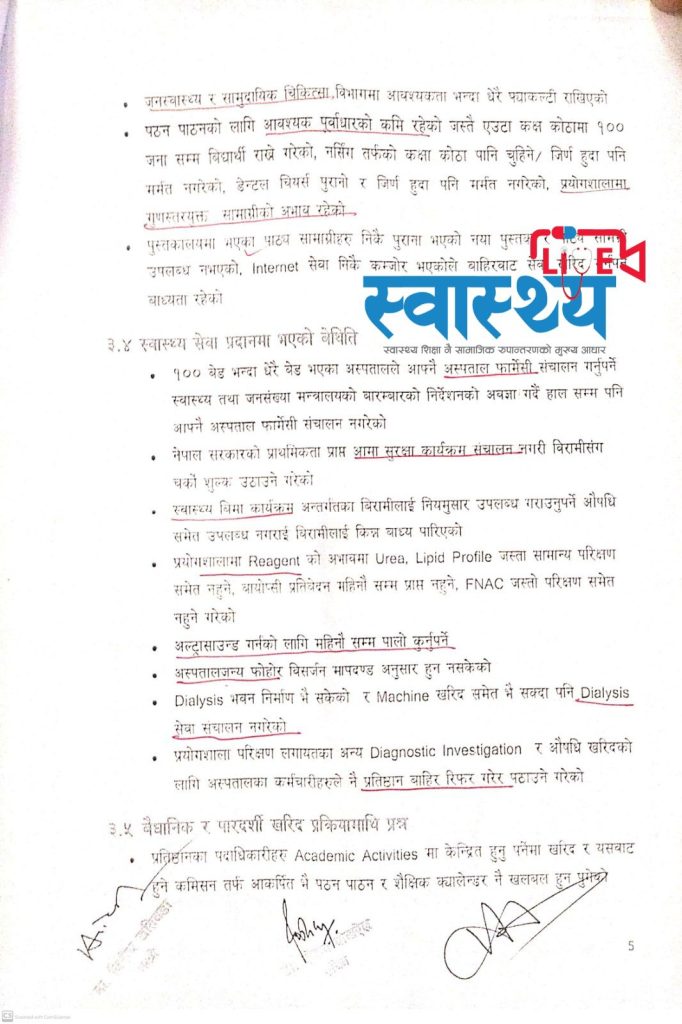 • जनस्वास्थ्य र सामुदायिक चिकित्सा विभागमा आवश्यकता भन्दा धेरै फ्याकल्टी राखिएको
• पठन पाठनको लागि आवश्यक पूर्वाधारको कमि रहेको जस्तै एउटा कक्ष कोठामा १००
जना सम्म बिद्यार्थी राख्ने गरेको, नर्सिंग तर्फको कक्षा कोठा पानि चुहिने/ जिर्ण हुदा पनि
मर्मत नगरेको, डेन्टल चियर्स पुरानो र जिर्ण हुदा पनि मर्मत नगरेको, प्रयोगशालामा
गुणस्तरयुक्त सामाग्रीको अभाव रहेको
• पुस्तकालयमा भएका पाठ्य सामाग्रीहरु निकै पुराना भएको नया पुस्तक र पाठ्य सामग्री
उपलब्ध नभएको, Internet सेवा निकै कम्जोर भएकोले बाहिरबाट सेवा खरिद गर्नुपर्ने
बाध्यता रहेको
LIVE
स्वास्थ्य
स्वास्थ्य शिक्षा नै सामाजिक रुपान्तरणको मुख्य आधार
३.४ स्वास्थ्य सेवा प्रदानमा भएको बेथिति
• १०० बेड भन्दा धेरै बेड भएका अस्पतालले आफ्नै अस्पताल फार्मेसी संचालन गर्नुपर्ने
स्वास्थ्य तथा जनसंख्या मन्त्रालयको बारम्बारको निर्देशनको अवज्ञा गर्दै हाल सम्म पनि
आफ्नै अस्पताल फार्मेसी संचालन नगरेको
• नेपाल सरकारको प्राथमिकता प्राप्त आमा सुरक्षा कार्यक्रम संचालन नगरी बिरामीसंग
चर्को शुल्क उठाउने गरेको
• स्वास्थ्य बिमा कार्यक्रम अन्तर्गतका बिरामीलाई नियमुसार उपलब्ध गराउनुपर्ने औषधि
समेत उपलब्ध नगराई बिरामीलाई किन्न बाध्य पारिएको
• प्रयोगशालामा Reagent को अभावमा Urea, Lipid Profile जस्ता सामान्य परिक्षण
समेत नहुने, बायोप्सी प्रतिवेदन महिनौ सम्म प्राप्त नहुने, FNAC जस्तो परिक्षण समेत
नहुने गरेको
• अल्ट्रासाउन्ड गर्नको लागि महिनौ सम्म पालो कुर्नुपर्ने
• अस्पतालजन्य फोहोर बिसर्जन मापदण्ड अनुसार हुन नसकेको
• Dialysis भवन निर्माण भै सकेको र Machine खरिद समेत भै सक्दा पनि Dialysis
सेवा संचालन नगरेको
• प्रयोगशाला परिक्षण लगायतका अन्य Diagnostic Investigation र औषधि खरिदको
लागि अस्पतालका कर्मचारीहरुले नै प्रतिष्ठान बाहिर रिफर गरेर पठाउने गरेको
३.५ वैधानिक र पारदर्शी खरिद प्रक्रियामाथि प्रश्न
• प्रतिष्ठानका पदाधिकारीहरु Academic Activities मा केन्द्रित हुनु पर्नेमा खरिद र यसबाट
हुने कमिसन तर्फ आकर्षित भै पठन पाठन र शैक्षिक क्यालेन्डर नै खलबल हुन पुगेको
5
CS Scanned with CamScanner